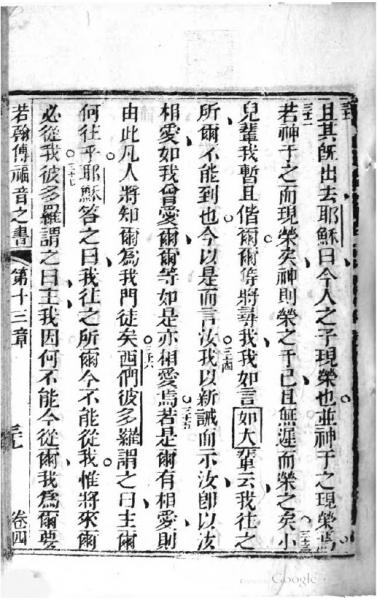 三一
且其既出去耶穌曰今人之子現榮也並神于之現榮焉
三二
若神于之而現榮矣神則榮之于已且無遲而榮之矣小
三三
兒輩我暫且偕爾爾等將尋我我如言如大輩云我往之
所爾不能到也今以是而言汝我以新誡而示汝卽以汝
三四
相愛如我曾愛爾爾等如是亦相愛焉若是爾有相愛則
三五
由此凡人將知爾為我門徒矣西們彼多羅謂之曰主爾
三六
何往乎耶穌答之曰我往之所爾今不能從我惟將來爾
必從我彼多羅謂之曰主我因何不能今從爾我為爾要
三七
若翰傳福音之書
第十三章
卷四
Google